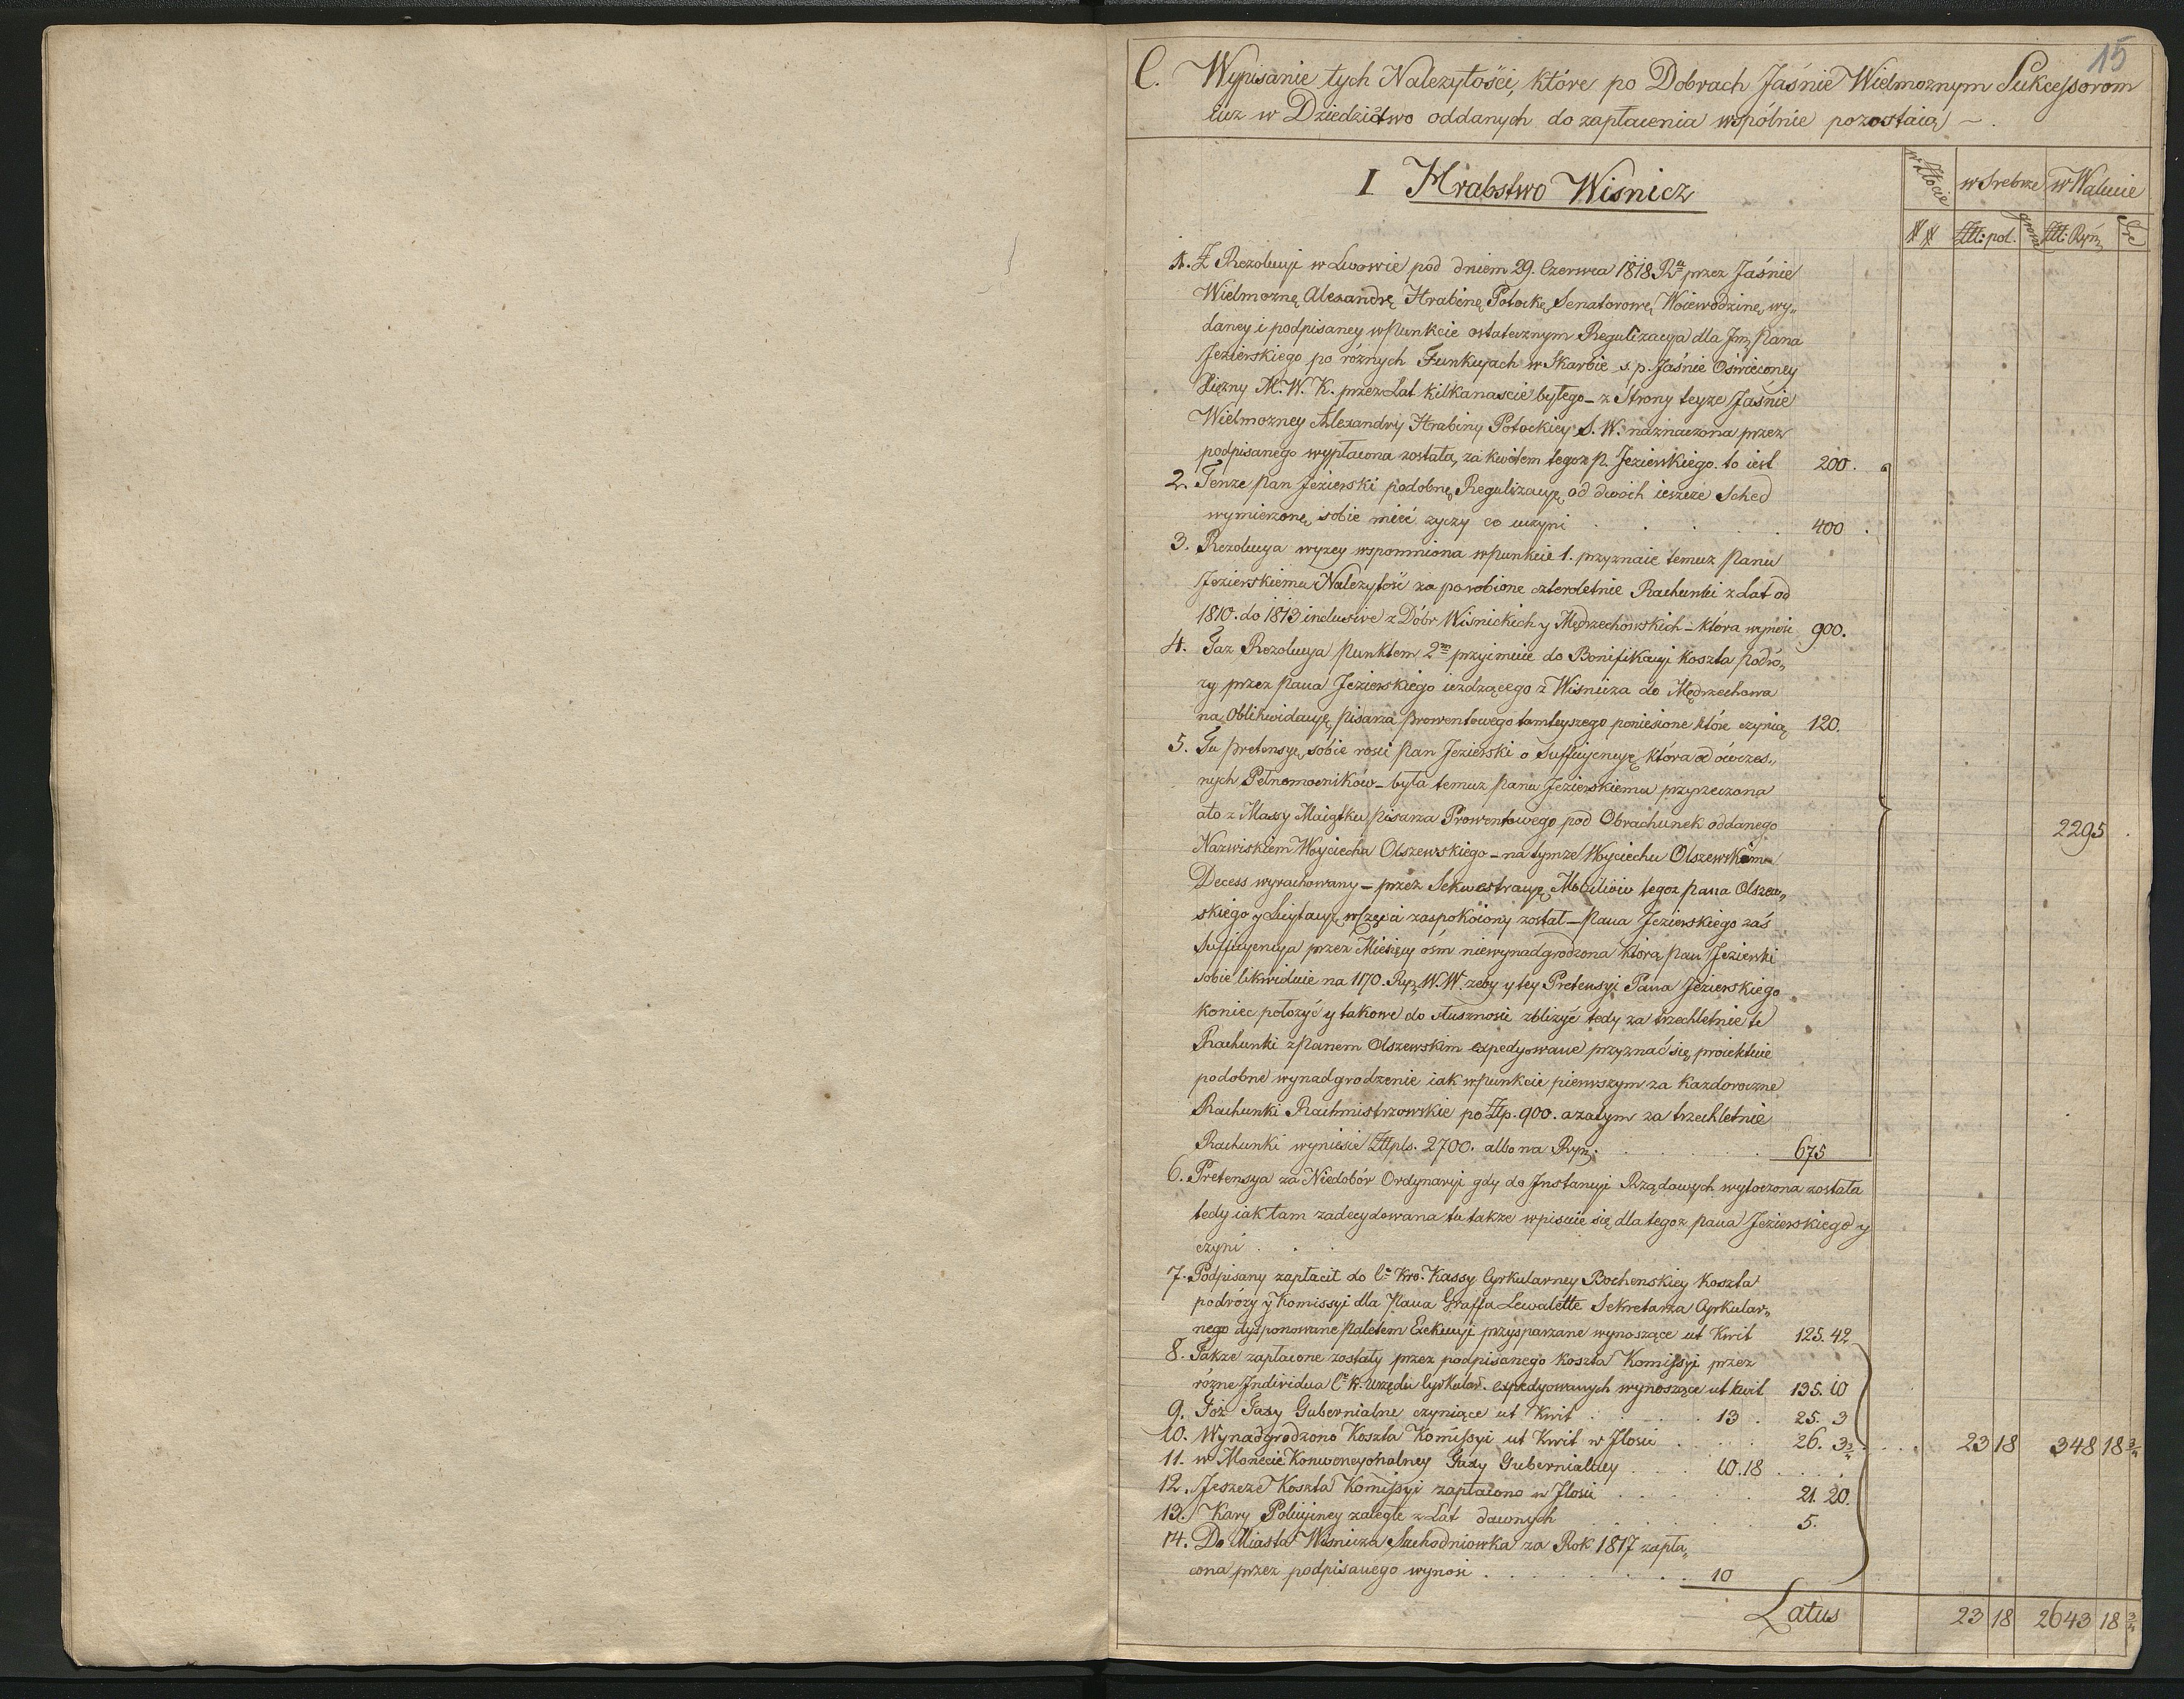 15
C. Wypisanie tych Nalezytości, które po Dobrach Jaśnie Wielmoznym Sukcessorom
iuz w Dziedzictwo oddanych do zapłacenia wspólnie pozostaią –.
I Hrabstwo Wisnicz
w Złocie w Srebrze w Walucie
## Złt: pol. grosze Złt: Ryń: Xr
1. Z Rezolucyi w Lwowie pod dniem 29. Czerwca 1818 Ru przez Jaśnie
Wielmozną Alexandrę Hrabinę Potocką, Senatorową Woiewodzinę, wy„
daney i podpisaney w Punkcie ostatecznym Regulizacya dla Jmć Pana
Jezierskiego po róznych Funkcyach w Skarbie ś. p. Jaśnie Oświeconey
Xięzny M. W. K. przez Lat kilkanascie byłego – z Strony teyze Jaśnie
Wielmozney Alexandry Hrabiny Potockiey S. W. naznaczona przez
podpisanego wypłacona została, za kwitem tegoz P. Jezierskiego. to iest 200.
2. Tenze Pan Jezierski podobną Regulizacyę od dwóch ieszcze Sched
wymierzoną sobie mieć zyczy co uczyni . . . 400.
3. Rezolucya wyzey wspomniona w Punkcie 1. przyznaie temuz Panu
Jezierskiemu Nalezytość za porobione czteroletnie Rachunki z Lat od
1810. do 1813 inclusive z Dóbr Wisnickich y Mędrzechowskich – która wynosi 900.
4. Taz Rezolucya Punktem 2m przyimuie do Bonifikacyi Koszta Podró„
zy przez Pana Jezierskiego iezdzącego z Wisnicza do Mędrzechowa
na Oblikwidacyę Pisarza Prowentowego tamteyszego poniesione które czynią 120.
5. Tu pretensyę sobie rości Pan Jezierski o Sufficyencyę która od ówczes„
nych Pełnomocników – była temuz Panu Jezierskiemu przyrzeczona
a to z Massy Maiątku Pisarza Prowentowego pod Obrachunek oddanego
Nazwiskiem Woyciecha Olszewskiego – na tymze Woyciechu Olszewskim
Decess wyrachowany – przez Sekwestracyę Mobiliów tegoz Pana Olszew„
skiego y Licytacyę w Części zaspokoiony został – Pana Jezierskiego zaś
Sufficyencya przez Miesięcy ośm niewynadgrodzona którą Pan Jezierski
sobie likwiduie na 1170. Ryń. W. W. zeby y tey Pretensyi Pana Jezierskiego
koniec połozyć y takowe do słuszności zblizyć tedy za trzechletnie te
Rachunki z Panem Olszewskim expedyowane przyznać się proiektuie
podobne wynadgrodzenie iak w Punkcie pierwszym za kazdoroczne
Rachunki Rachmistrzowskie po Złp. 900. a zatym za trzechletnie
Rachunki wyniesie Złpls. 2700. albo na Ryń: . . . 675
2295
6. Pretensya za Niedobór Ordynaryi gdy do Instancyi Rządowych wytoczona została
tedy iak tam zadecydowana tu takze wpisuie się dla tegoz Pana Jezierskiego y
czyni . . .
7. Podpisany zapłacił do C: Kró. Kassy Cyrkularney Bochenskiey Koszta
podrózy y Komissyi dla Pana Graffa Lewalette Sekretarza Cyrkular„
nego dysponowane Paletem Exekucyi przysparzane wynoszące ut Kwit 125. 42
8. Takze zapłacone zostały przez podpisanego Koszta Komissyi przez
rózne Individua C: K: Urzędu Cyrkular. expedyowanych wynoszące ut Kwit 135. 10
9. Toz Taxy Gubernialne czyniące ut Kwit . . . 13. 25. 3
10. Wynadgrodzono Koszta Komissyi ut Kwit w Ilosci . . . 26. 3 3/4 . . . 23 18 348 18 3/4
11. w Monecie Konwencyónalney Taxy Gubernialney . . . 10.18 . . .
12. Jeszcze Koszta Komissyi zapłacono w Ilosci . . . 21. 20.
13. Kary Policyiney zaległe z Lat dawnych . . . 5.
14. Do Miasta Wisnicza Suchodniowka za Rok 1817 zapła„
cona przez podpisanego wynosi . . . 10
Latus 23 18 2643 18 3/4